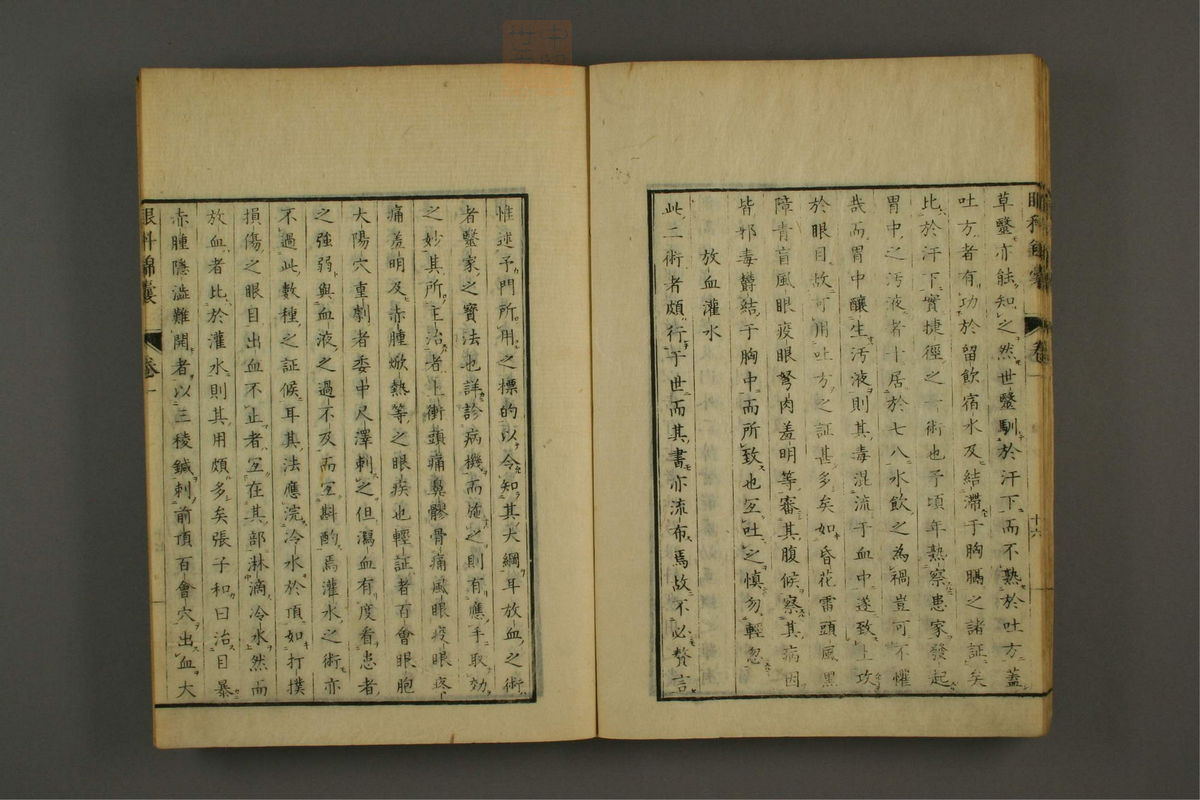 草毉亦能知之然世毉馴於汗下而不熟於吐方蓋
吐方者有功於留飲宿水及結滯于胸膈之諸証矣
比於汗下實捷徑之一術也予頃年熟察患家發起
胃中之汚液者十居於七八水飲之為禍豈可不懼
哉而胃中釀生汚液則其毒混流于血中遂致上攻
於眼目故可用吐方之証甚多矣如昏花雷頭風黑
障青盲風眼疫眼胬肉羞明等審其腹候察其病因
皆邪毒欝結于胸中而所致也宜吐之慎勿輕忽
放血灌水
此二術者頗行于世而其書亦流布焉故不必贅言
眼科錦囊 卷一 十六
惟述予門所用之標的以令知其大綱耳放血之術
者毉家之寳法也詳診病機而施之則有應手取効
之妙其所主治者上衝頭痛鼻髎骨痛風眼疫眼疼
痛羞明及赤腫焮熱等之眼疾也輕証者百會眼胞
大陽穴重劇者委中尺澤刺之但瀉血有度看患者
之強弱與血液之過不及而宜斟酌焉灌水之術亦
不過此數種之証候耳其法應浣冷水於頂如打撲
損傷之眼目出血不止者宜在其部淋滴冷水然而
放血者比於灌水則其用頗多矣張子和曰治目暴
赤腫隱澁難開者以三稜鍼刺前頂百會穴出血大
眼科錦囊 卷一